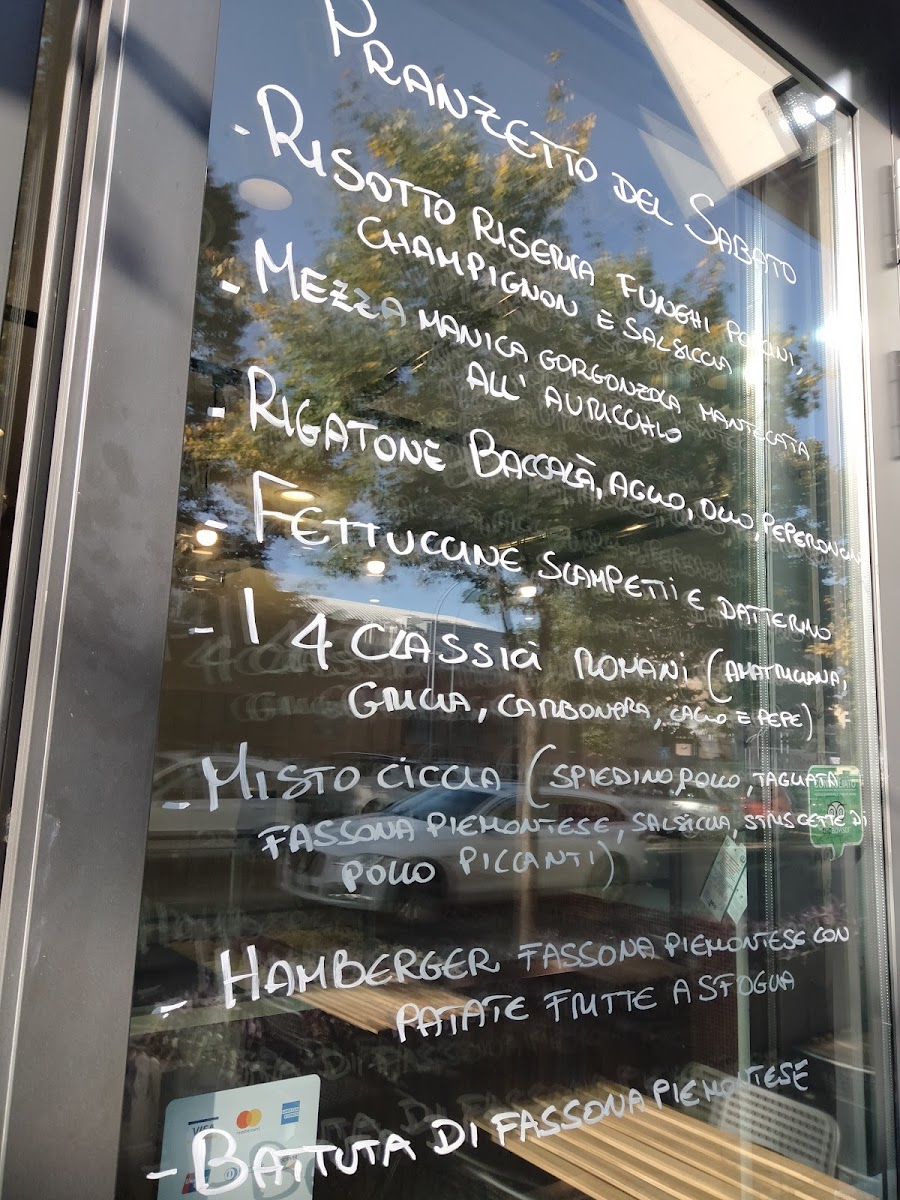 PRANZETTO DEL SABATO
- RISOTTO RISERVA FUNGHI PORCINI,
CHAMPIGNON E SALSICCIA
- MEZZA MANICA GORGONZOLA MANTECATA
ALL' AURICCHIO
- RIGATONE BACCALÀ, AGLIO, OLIO, PEPERONCIN
- FETTUCCINE SCAMPETTI E DATTERINO
- I 4 CLASSICI ROMANI (AMATRICIANA,
GRICIA, CARBONARA, CACIO E PEPE)
- MISTO CICCIA (SPIEDINO POLLO, TAGLIATA
FASSONA PIEMONTESE, SALSICCIA, STRISCETTE DI
POLLO PICCANTI)
- HAMBERGER FASSONA PIEMONTESE CON
PATATE FRITTE A SFOGLIA
- BATTUTA DI FASSONA PIEMONTESE
VISA